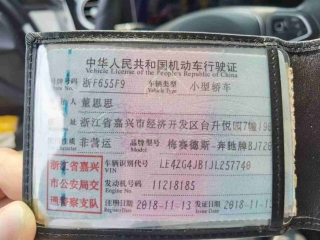 中华人民共和国机动车行驶证
Vehicle License of the People's Republic of China
号牌号码 浙F655F9 车辆类型 小型轿车
Plate No. Vehicle Type
所有人 董思思
Owner
住址 浙江省嘉兴市经济开发区台升悦园7幢
Address
使用性质 非营运 品牌型号 梅赛德斯-奔驰牌BJ72
Model
浙江省嘉兴
市公安局交
通警察支队
车辆识别代号 LE4ZG4JB1JL257740
VIN
发动机号码 11218185
Engine No.
注册日期 2018-11-13 发证日期 2018-11-13
Register Date Issue Date